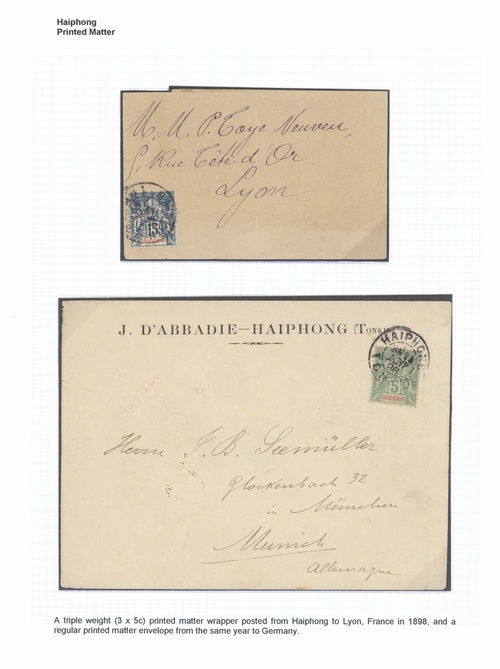 Haiphong
Printed Matter
M. M. P. Coye Neuveu,
5, Rue Tête d'Or.
Lyon
15
J. D'ABBADIE—HAIPHONG (Tonkin)
HAIPHONG
5
Herrn J. B. Seemüller
Glockenbach 32
in München
Munich
Allemagne
A triple weight (3 x 5c) printed matter wrapper posted from Haiphong to Lyon, France in 1898, and a
regular printed matter envelope from the same year to Germany.